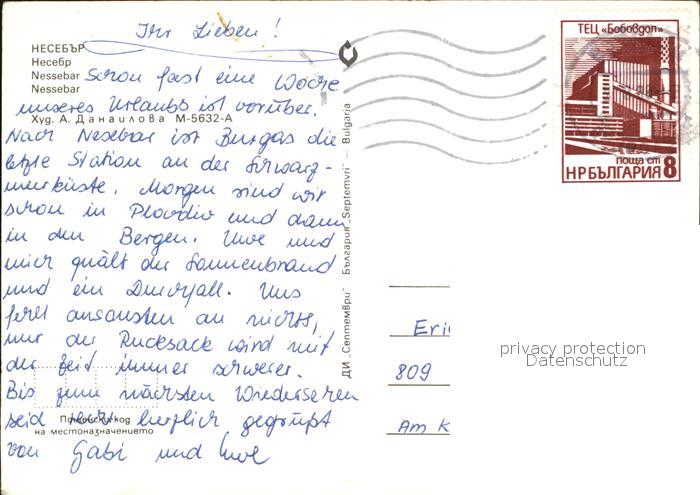 Ihr Lieben!
НЕСЕБЪР
Несебр
Nessebar
Nessebar
Худ. А. Данаилова М-5632-А
Schon fast eine Woche
unseres Urlaubs ist vorüber.
Nach Nesebar ist Burgas die
letzte Station an der Schwarz-
meerküste. Morgen sind wir
schon in Plovdiv und dann
in den Bergen. Uwe und
mich quält der Sonnenbrand
und ein Durchfall. Uns
fehlt ansonsten an nichts,
nur der Rucksack wird mit
der Zeit immer schwerer.
Bis zum nächsten Wiedersehen
seid recht herzlich gegrüßt
von Gabi und Uwe
Пощенски код
на местоназначението
ДИ „Септември" България „Septemvri" — Bulgaria
ТЕЦ «Бобовдол»
поща ст
НР БЪЛГАРИЯ 8
Eri
809
Am K
privacy protection
Datenschutz